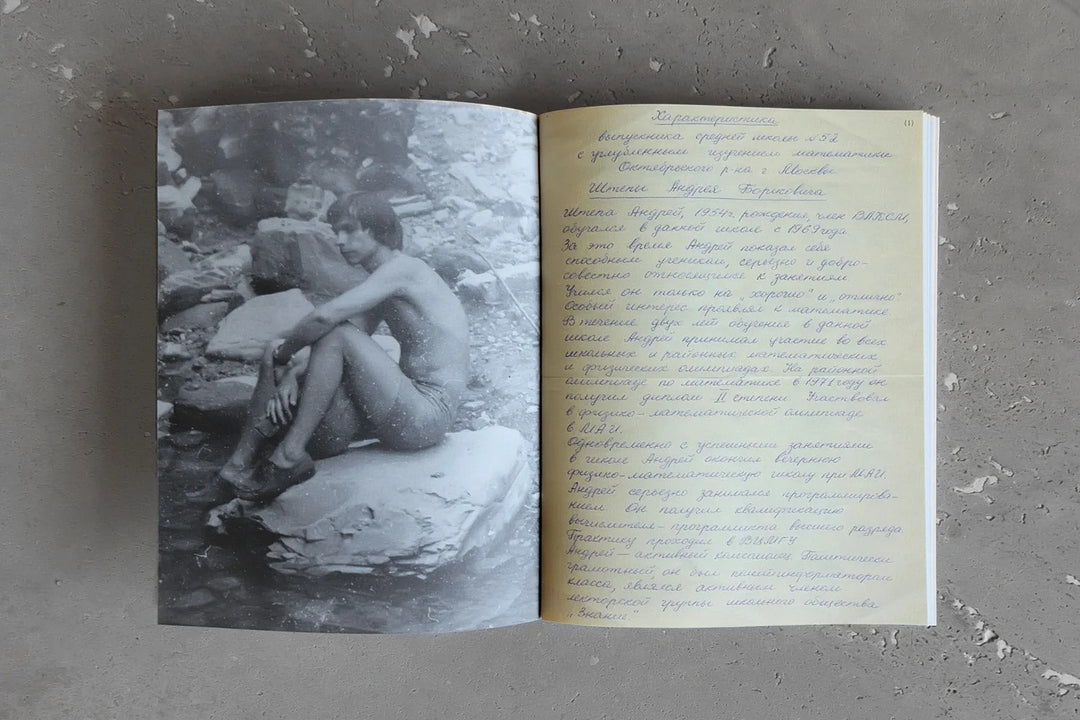 Характеристика
(1)
выпускника средней школы №52
с углубленным изучением математики
Октябрьского р-на г. Москвы
Штепы Андрея Борисовича
Штепа Андрей, 1954 г. рождения, член ВЛКСМ,
обучался в данной школе с 1969 года.
За это время Андрей показал себя
способным учеником, серьезно и добро-
совестно относящимся к занятиям.
Учился он только на „хорошо" и „отлично".
Особый интерес проявлял к математике.
В течение двух лет обучения в данной
школе Андрей принимал участие во всех
школьных и районных математических
и физических олимпиадах. На районной
олимпиаде по математике в 1971 году он
получил диплом II степени. Участвовал
в физико-математической олимпиаде
в МАИ.
Одновременно с успешными занятиями
в школе Андрей окончил вечернюю
физико-математическую школу при МАИ.
Андрей серьезно занимался программирова-
нием. Он получил квалификацию
вычислителя-программиста высшего разряда.
Практику проходил в
Андрей — активный комсомолец. Политически
грамотный, он был политинформатором
класса, являлся активным членом
лекторской группы школьного общества
„Знание".